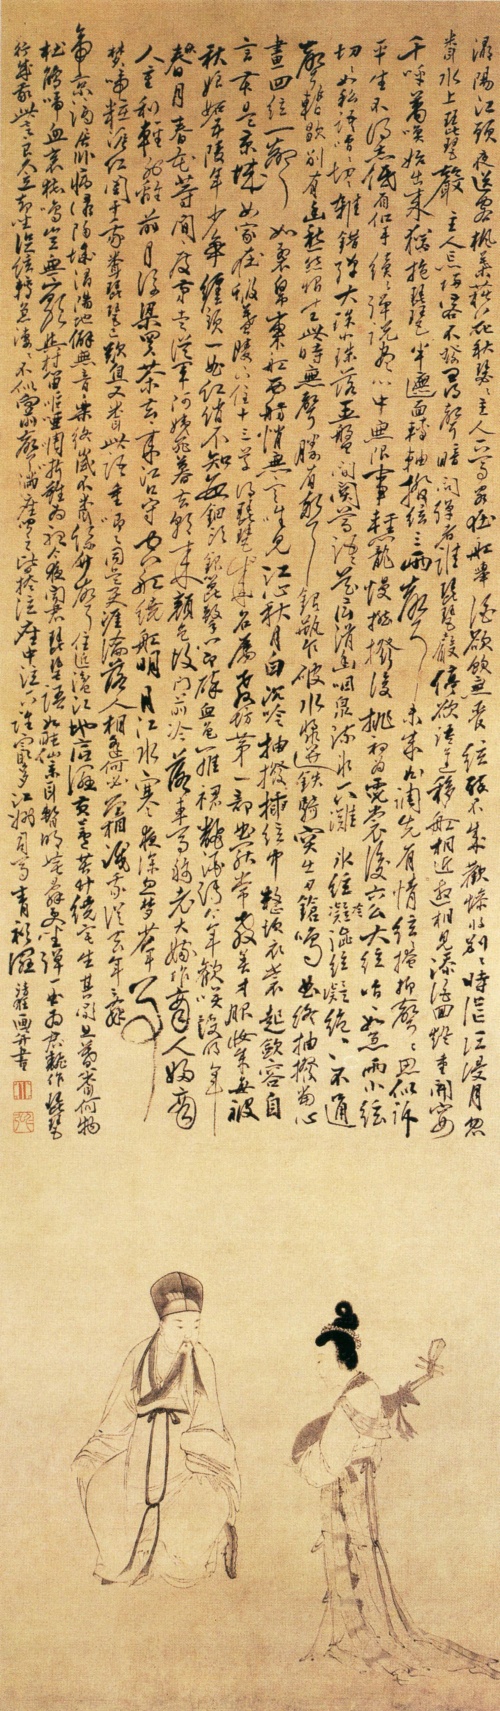 潯陽江頭夜送客楓葉荻花秋瑟瑟主人下馬客在船舉酒欲飲無管絃醉不成歡慘將別別時茫茫江浸月忽
聞水上琵琶聲主人忘歸客不發尋聲暗問彈者誰琵琶聲停欲語遲移船相近邀相見添酒回燈重開宴
千呼萬喚始出來猶抱琵琶半遮面轉軸撥絃三兩聲未成曲調先有情絃絃掩抑聲聲思似訴
平生不得志低眉信手續續彈說盡心中無限事輕籠慢撚撥復挑初為霓裳後六么大絃嘈嘈如急雨小絃
切切如私語嘈嘈切切雜錯彈大珠小珠落玉盤間關鶯語花底滑幽咽泉流水下灘水絃冷澁絃凝絕凝絕不通
聲暫歇別有幽愁暗恨生此時無聲勝有聲銀瓶乍破水漿迸鐵騎突出刀鎗鳴曲終抽撥當心
畫四絃一聲如裂帛東船西舫悄無言唯見江心秋月白沉吟抽撥插絃中整頓衣裳起斂容自
言本是京城女家在蝦蟇陵下住十三學得琵琶成名屬教坊第一部曲罷常教善才服妝成每被
秋娘妬五陵年少爭纏頭一曲紅綃不知數鈿頭銀篦擊節碎血色羅裙翻酒污今年歡笑復明年
秋月春風等閒度弟走從軍阿姨死暮去朝來顏色改門前冷落車馬稀老大嫁作商人婦商
人重利輕離別前月浮梁買茶去去來江口守空船繞船明月江水寒夜深忽夢少年事
夢啼粧淚紅闌干我聞琵琶已歎息又聞此語重唧唧同是天涯淪落人相逢何必曾相識我從去年辭
帝京謫居臥病潯陽城潯陽地僻無音樂終歲不聞絲竹聲住近湓江地低濕黃蘆苦竹繞宅生其間旦暮聞何物
杜鵑啼血哀猿鳴豈無山歌與村笛嘔啞嘲哳難為聽今夜聞君琵琶語如聽仙樂耳暫明莫辭更坐彈一曲為君翻作琵琶
行感我此言良久立却坐促絃絃轉急淒淒不似向前聲滿座聞之皆掩泣座中泣下誰最多江州司馬青衫濕
清狂畫并書